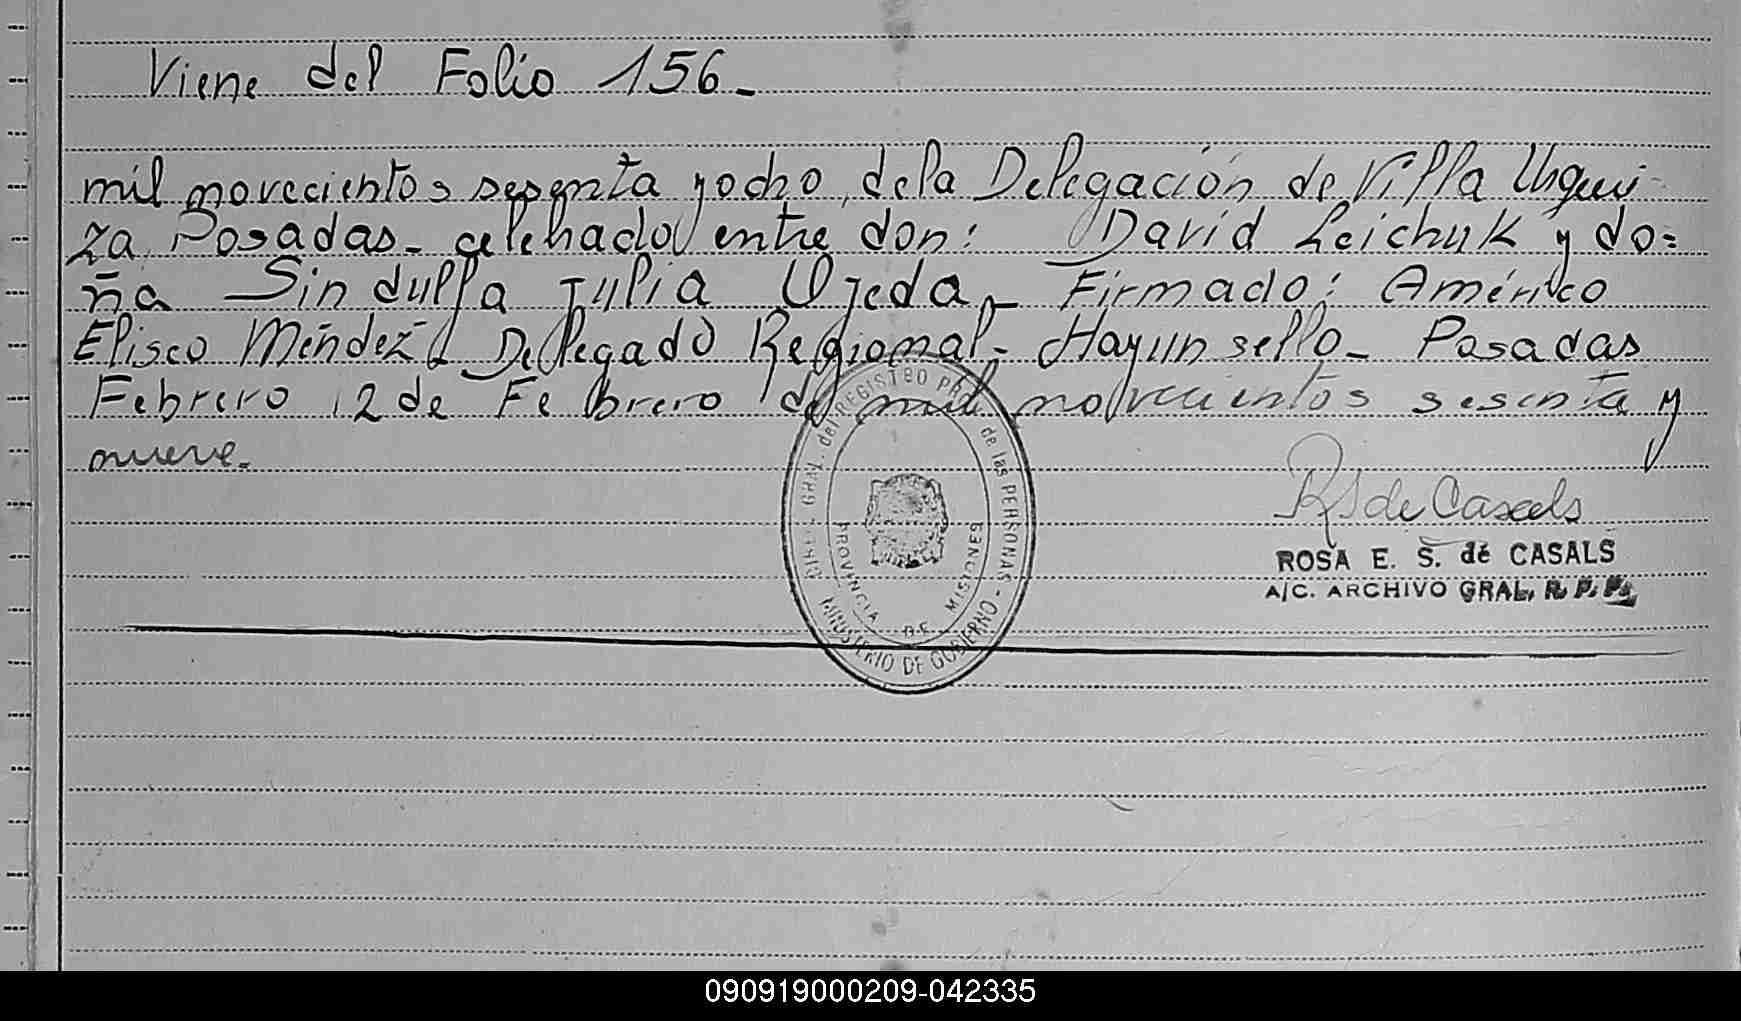 Viene del Folio 156.-
mil novecientos sesenta y ocho, de la Delegación de Villa Urqui-
za, Posadas.- celebrado entre don: David Leichuk y do=
ña Sindulfa Julia Ojeda.- Firmado: Américo
Eliseo Méndez.- Delegado Regional.- Hay un sello.- Posadas
Febrero 12 de Febrero de mil novecientos sesenta y
nueve.-
R S de Casals
ROSA E. S. de CASALS
A/C. ARCHIVO GRAL. R. P. P.
DIREC. GRAL. del REGISTRO PROV. de las PERSONAS - MINISTERIO DE GOBIERNO
PROVINCIA DE MISIONES
090919000209-042335